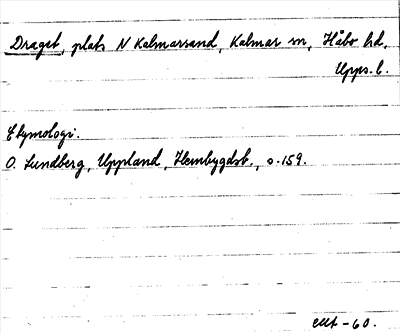 Draget, plats N Kalmarsand, Kalmar sn, Håbo hd,
Upps. l.
Etymologi.
O. Lundberg, Uppland, Hembygdsb., s. 159.
-60.